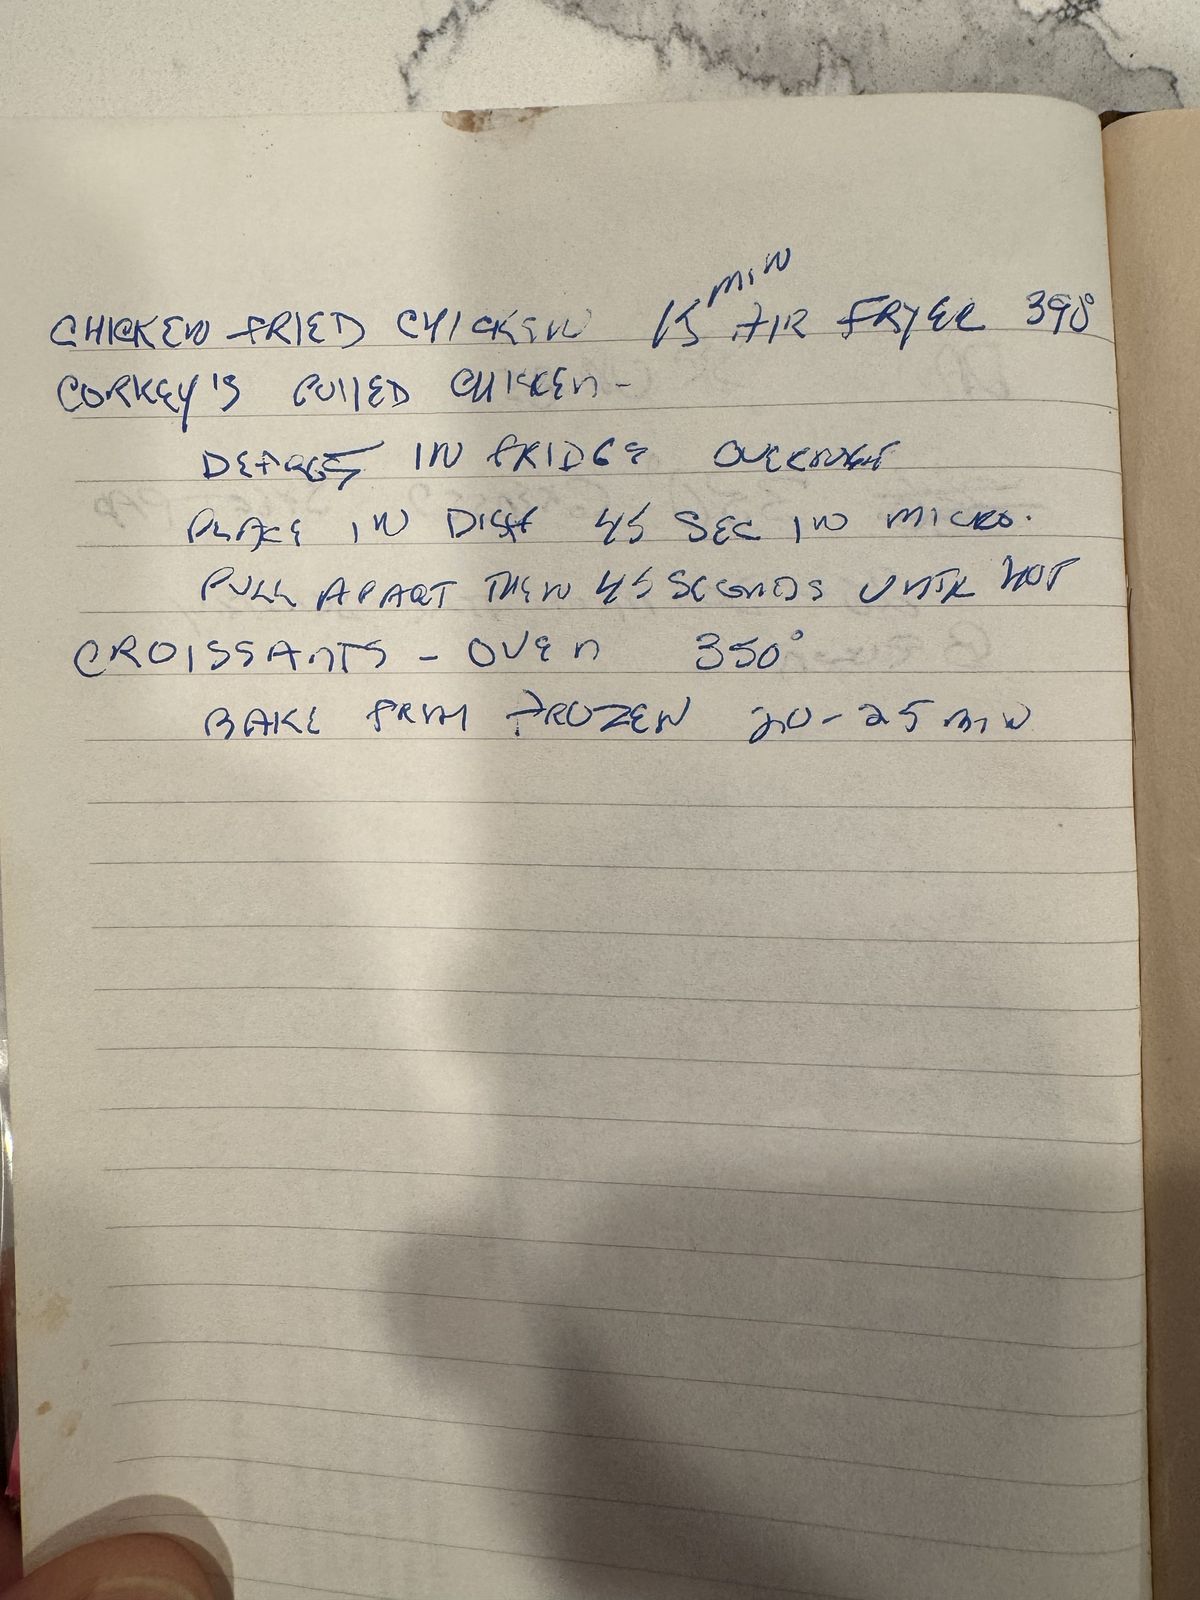 CHICKEN FRIED CHICKEN 15 MIN AIR FRYER 390°
CORKEY'S PULLED CHICKEN -
DEFROST IN FRIDGE OVERNIGHT
PLACE IN DISH 45 SEC IN MICRO.
PULL APART THEN 45 SECONDS UNTIL HOT
CROISSANTS - OVEN 350°
BAKE FROM FROZEN 20-25 MIN